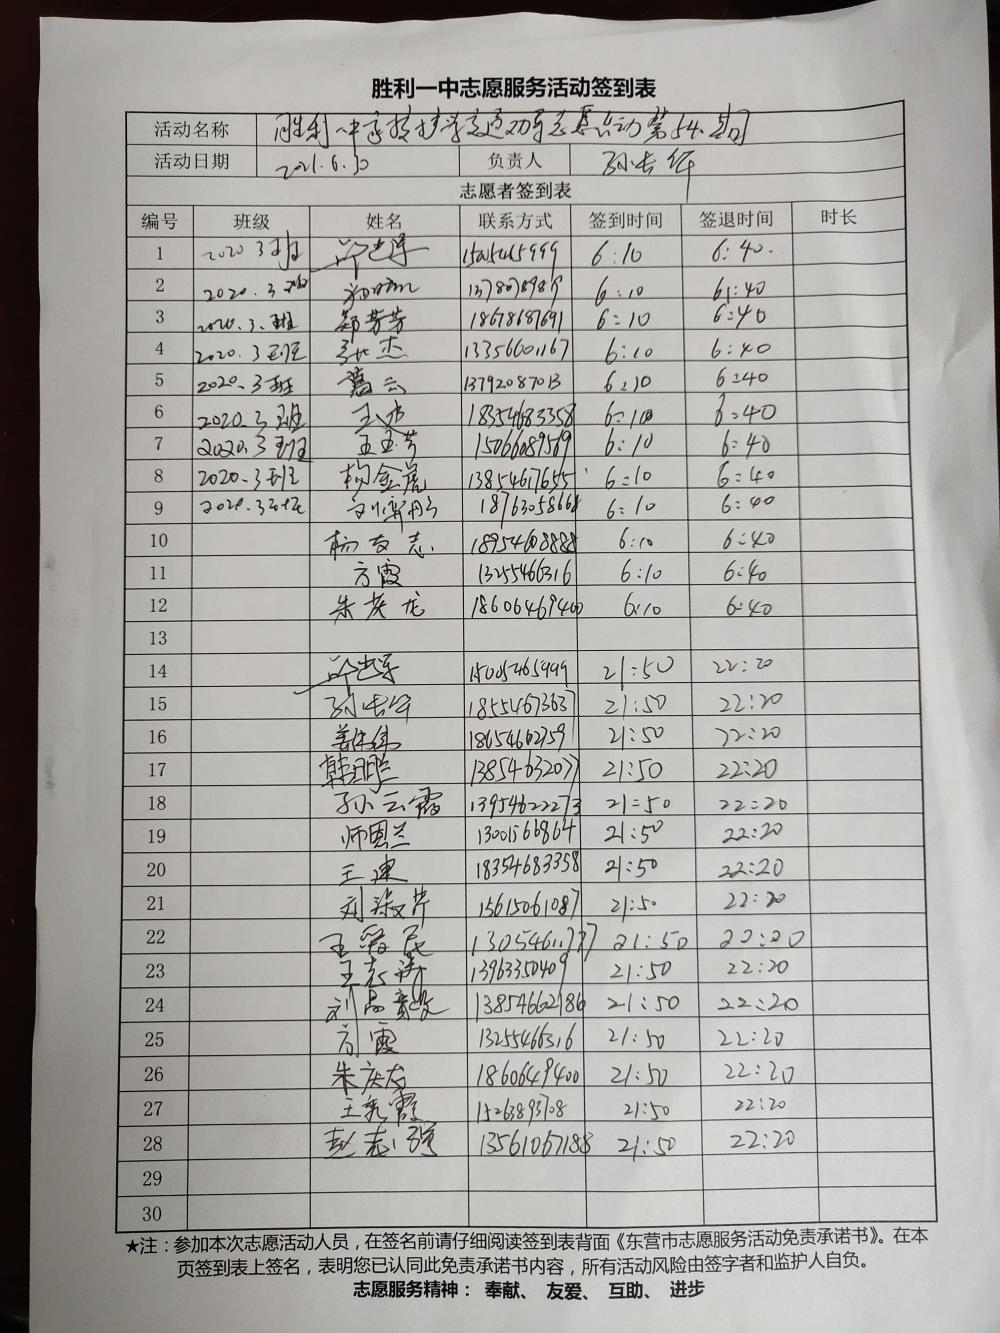 胜利一中志愿服务活动签到表
活动名称 胜利一中 志愿活动第54期
活动日期 2021.6.30 负责人 孙长军
志愿者签到表
编号 班级 姓名 联系方式 签到时间 签退时间 时长
1 2020 3班 6:10 6:40.
2 2020.3班 6:10 6:40
3 2020.3.班 郑芳芳 18678687691 6:10 6:40
4 2020.3班 张杰 13356601167 6:10 6:40
5 2020.3班 葛云 13792087013 6:10 6:40
6 2020.3班 18354683358 6:10 6:40
7 2020.3班 王玉芳 15066089569 6:10 6:40
8 2020.3班 杨金虎 13854617655 6:10 6:40
9 2020.3班 18763058668 6:10 6:40
10 杨友志 18954608888 6:10 6:40
11 方霞 13255466316 6:10 6:40
12 朱庆龙 18606469400 6:10 6:40
13
14 15005465999 21:50 22:20
15 18554673637 21:50 22:20
16 姜伟伟 18654602759 21:50 22:20
17 13854632077 21:50 22:20
18 孙云霞 13954622273 21:50 22:20
19 师恩兰 13001566864 21:50 22:20
20 王建 18354683358 21:50 22:20
21 15615061087 21:50 22:20
22 13054611737 21:50 22:20
23 王志涛 1396350409 21:50 22:20
24 13854662186 21:50 22:20
25 方霞 13255466316 21:50 22:20
26 朱庆龙 1860649400 21:50 22:20
27 王秀霞 15263893708 21:50 22:20
28 赵志强 13561067188 21:50 22:20
29
30
★注：参加本次志愿活动人员，在签名前请仔细阅读签到表背面《东营市志愿服务活动免责承诺书》。在本
页签到表上签名，表明您已认同此免责承诺书内容，所有活动风险由签字者和监护人自负。
志愿服务精神： 奉献、 友爱、 互助、 进步